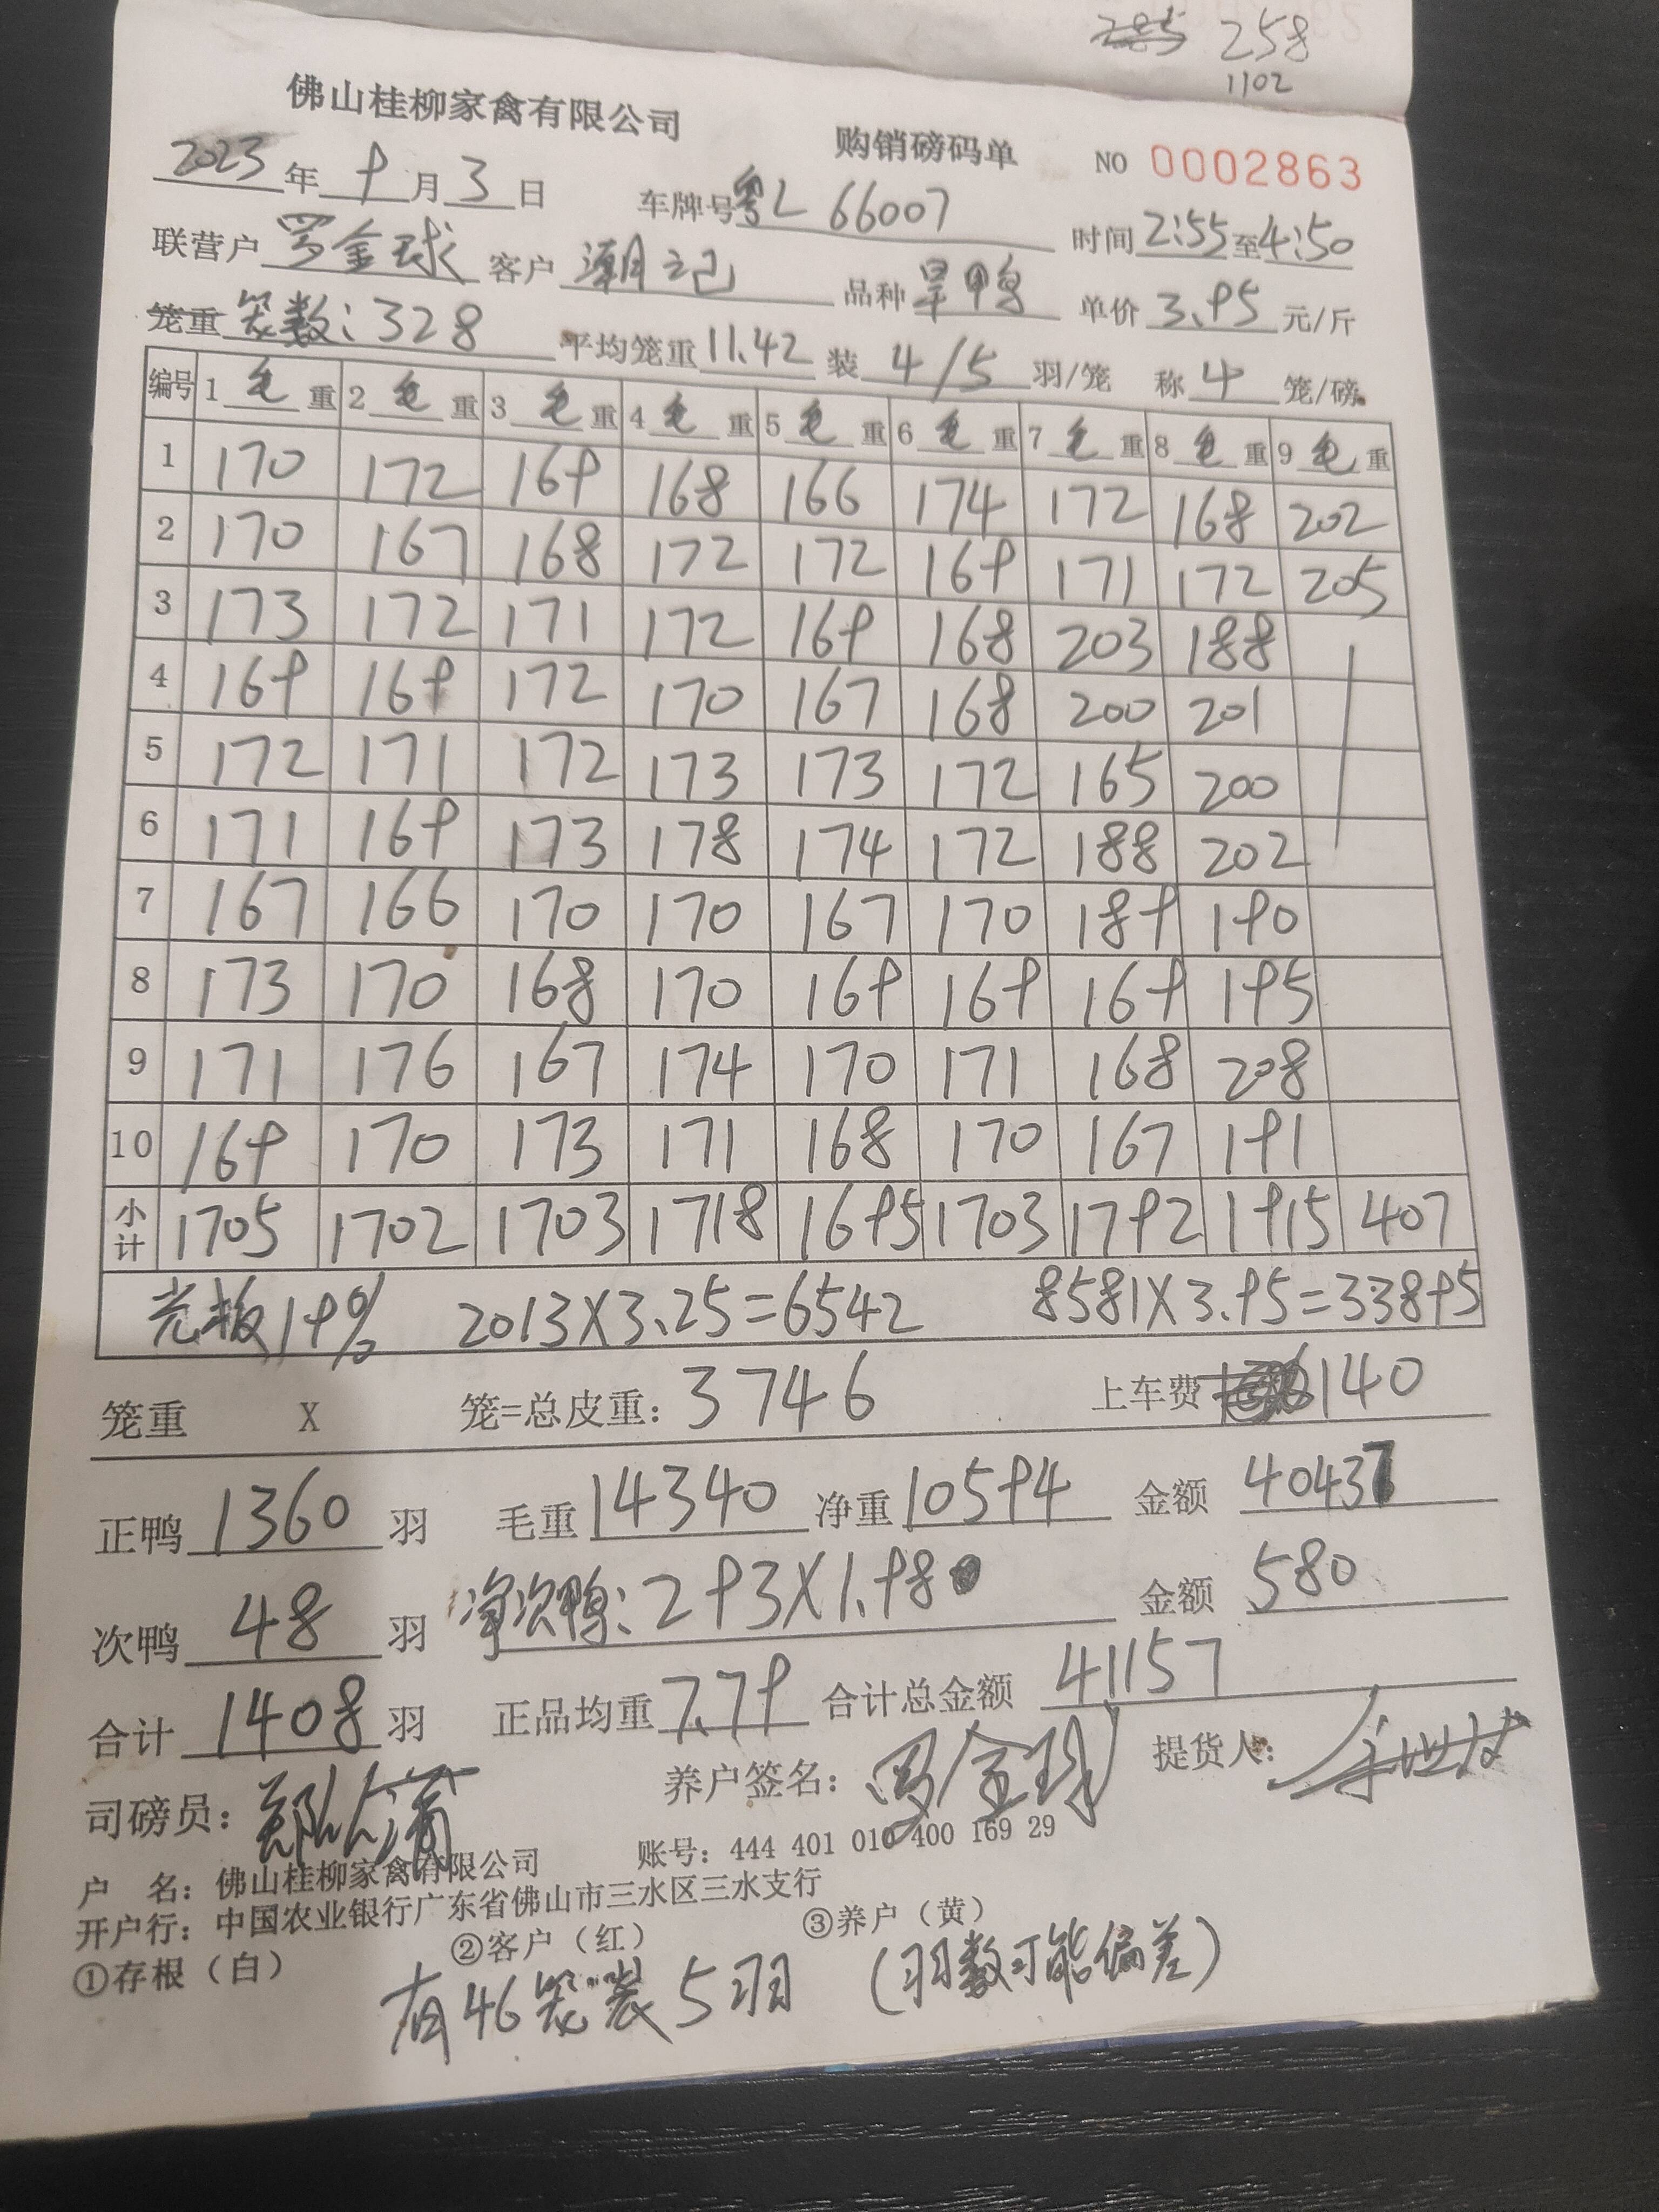 285 258
1102
佛山桂柳家禽有限公司 购销磅码单 NO 0002863
2023年9月3日 车牌号粤L 66007 时间2:55至4:50
联营户 罗金球 客户 潮记 品种 旱鸭 单价 3.95 元/斤
笼重 笼数:328 平均笼重 11.42 装 4/5 羽/笼 称 4 笼/磅
编号 1 毛 重 2 毛 重 3 毛 重 4 毛 重 5 毛 重 6 毛 重 7 毛 重 8 毛 重 9 毛 重
1 170 172 169 168 166 174 172 168 202
2 170 167 168 172 172 169 171 172 205
3 173 172 171 172 169 168 203 188
4 169 169 172 170 167 168 200 201
5 172 171 172 173 173 172 165 200
6 171 169 173 178 174 172 188 202
7 167 166 170 170 167 170 189 190
8 173 170 168 170 169 169 169 195
9 171 176 167 174 170 171 168 208
10 169 170 173 171 168 170 167 191
小计 1705 1702 1703 1718 1695 1703 1792 1915 407
光板19% 2013X3.25=6542 8581X3.95=33895
笼重 X 笼=总皮重: 3746 上车费 140
正鸭 1360 羽 毛重 14340 净重 10594 金额 40437
次鸭 48 羽 净次鸭: 293X1.98 金额 580
合计 1408 羽 正品均重 7.79 合计总金额 41157
司磅员: 养户签名: 罗金球 提货人:
户 名: 佛山桂柳家禽有限公司 账号: 444 401 010 400 169 29
开户行: 中国农业银行广东省佛山市三水区三水支行
①存根(白) ②客户(红) ③养户(黄)
有46笼装5羽 (羽数可能偏差)